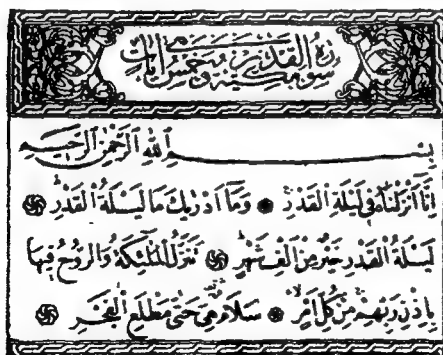 سورة القدر مكية وهي خمس آيات
بِسْمِ اللهِ الرَّحْمٰنِ الرَّحِيمِ
اِنَّا اَنْزَلْنَاهُ فِى لَيْلَةِ الْقَدْرِ ۞ وَمَا اَدْرٰيكَ مَا لَيْلَةُ الْقَدْرِ ۞
لَيْلَةُ الْقَدْرِ خَيْرٌ مِنْ اَلْفِ شَهْرٍ ۞ تَنَزَّلُ الْمَلٰئِكَةُ وَالرُّوحُ فِيهَا
بِاِذْنِ رَبِّهِمْ مِنْ كُلِّ اَمْرٍ ۞ سَلَامٌ هِىَ حَتّٰى مَطْلَعِ الْفَجْرِ ۞